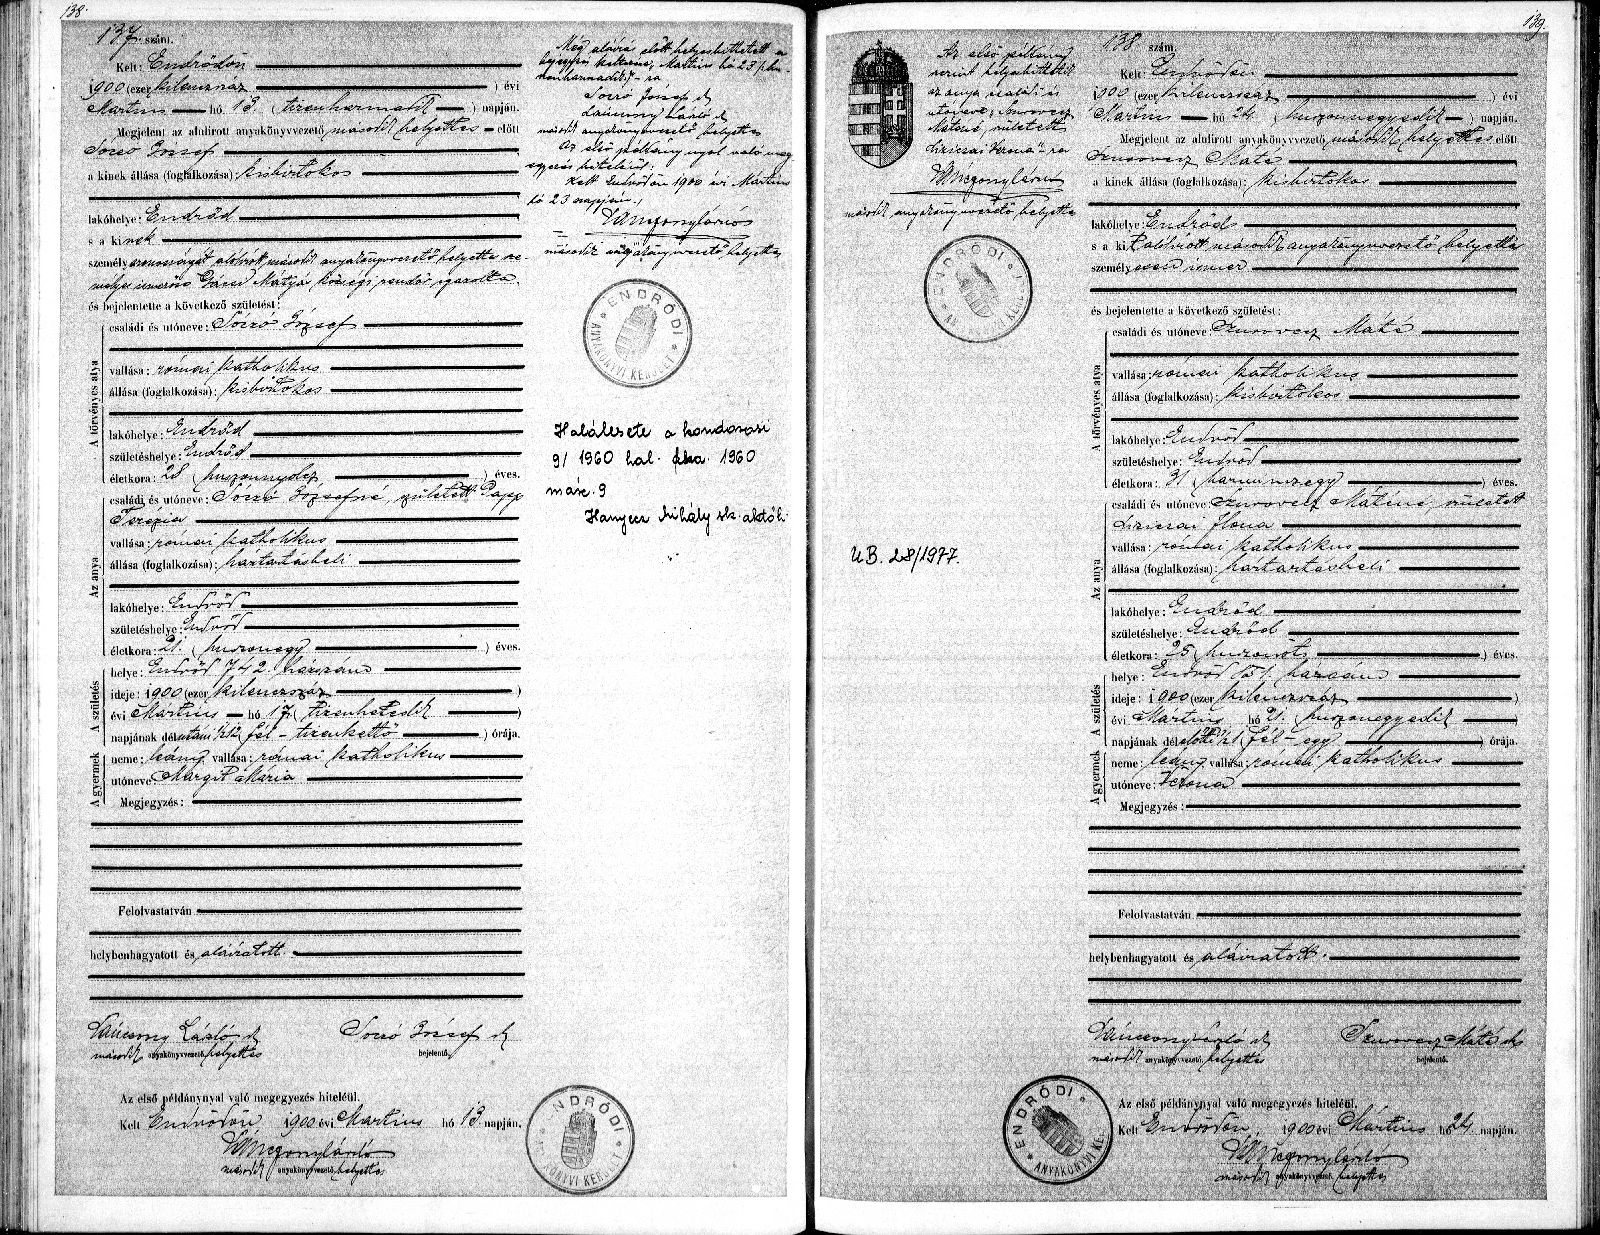 138.
137. szám.
Kelt: Endrődön
1900 (ezer kilenczszáz ) évi
Martius hó 13. (tizenharmadik ) napján.
Megjelent az alulirott anyakönyvvezető, második helyettes előtt
Soczó József
a kinek állása (foglalkozása): kisbirtokos
lakóhelye: Endrőd
s a kinek
személyazonosságát alólirott második anyakönyvvezető helyettes
Mátyás községi rendőr igazolta.
és bejelentette a következő születést:
A törvényes atya
családi és utóneve: Soczó József
vallása: római katholikus
állása (foglalkozása): kisbirtokos
lakóhelye: Endrőd
születéshelye: Endrőd
életkora: 28 (huszonnyolcz ) éves.
Az anya
családi és utóneve: Soczó Józsefné, született Papp
Terézia
vallása: római katholikus
állása (foglalkozása): háztartásbeli
lakóhelye: Endrőd
születéshelye: Endrőd
életkora: 21. (huszonegy ) éves.
A születés
helye: Endrőd 742. házszám
ideje: 1900 (ezer kilenczszáz )
évi Martius hó 17. (tizenhetedik )
napjának délutáni ½12 (fél-tizenkettő ) órája.
A gyermek
neme: leány vallása: római katholikus
utóneve: Margit Mária
Megjegyzés:
Felolvastatván
helybenhagyatott és aláiratott.
László
második anyakönyvvezető helyettes
Soczó József
bejelentő.
Az első példánynyal való megegyezés hiteléül.
Kelt Endrődön, 1900 évi Martius hó 13. napján.
második anyakönyvvezető, helyettes
ENDRŐDI ANYAKÖNYVI KERÜLET
Még aláirás előtt helyesbittetett a
Martius hó 23
Soczó József
László
második anyakönyvvezető helyettes
Az első példánynyal való meg
egyezés hiteléül.
Kelt Endrődön 1900 évi Mártius
hó 23 napján.
második anyakönyvvezető helyettes
ENDRŐDI ANYAKÖNYVI KERÜLET
Halálesete a kondorosi
9/1960 hal. 1960
márc. 9
Hanyecz Mihály sk.
139.
Az első példány
szerint helyesbittetett
az anya családi és
utóneve
Máténé, született
Ilona
második anyakönyvvezető helyettes
ENDRŐDI ANYAKÖNYVI KERÜLET
U.B. 28/1977.
138. szám.
Kelt: Endrődön
1900 (ezer kilenczszáz ) évi
Martius hó 24. (huszonnegyedik ) napján.
Megjelent az alulirott anyakönyvvezető, második helyettes előtt
Szurovecz Máté
a kinek állása (foglalkozása): kisbirtokos
lakóhelye: Endrőd
s a kit alólirott második anyakönyvvezető helyettes
személyesen ismer
és bejelentette a következő születést:
A törvényes atya
családi és utóneve: Szurovecz Máté
vallása: római katholikus
állása (foglalkozása): kisbirtokos
lakóhelye: Endrőd
születéshelye: Endrőd
életkora: 31 (harminczegy ) éves.
Az anya
családi és utóneve: Szurovecz Máténé, született
Ilona
vallása: római katholikus
állása (foglalkozása): háztartásbeli
lakóhelye: Endrőd
születéshelye: Endrőd
életkora: 25 (huszonöt ) éves.
A születés
helye: Endrőd házszám
ideje: 1900 (ezer kilenczszáz )
évi Martius hó 21. (huszonegyedik )
napjának délelőtti ½1 (fél-egy ) órája.
A gyermek
neme: leány vallása: római katholikus
utóneve:
Megjegyzés:
Felolvastatván
helybenhagyatott és aláiratott.
László
második anyakönyvvezető, helyettes
Szurovecz Máté
bejelentő.
Az első példánynyal való megegyezés hiteléül.
Kelt Endrődön, 1900 évi Mártius hó 24. napján.
második anyakönyvvezető, helyettes
ENDRŐDI ANYAKÖNYVI KER.